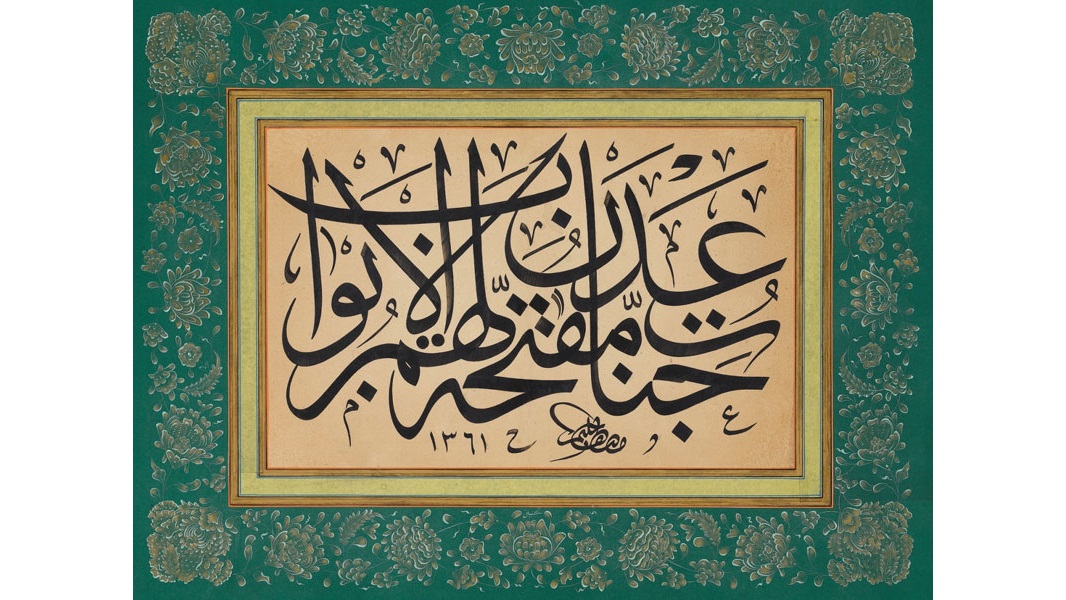 جنات عدن مفتحة لهم الابواب
١٣٦١